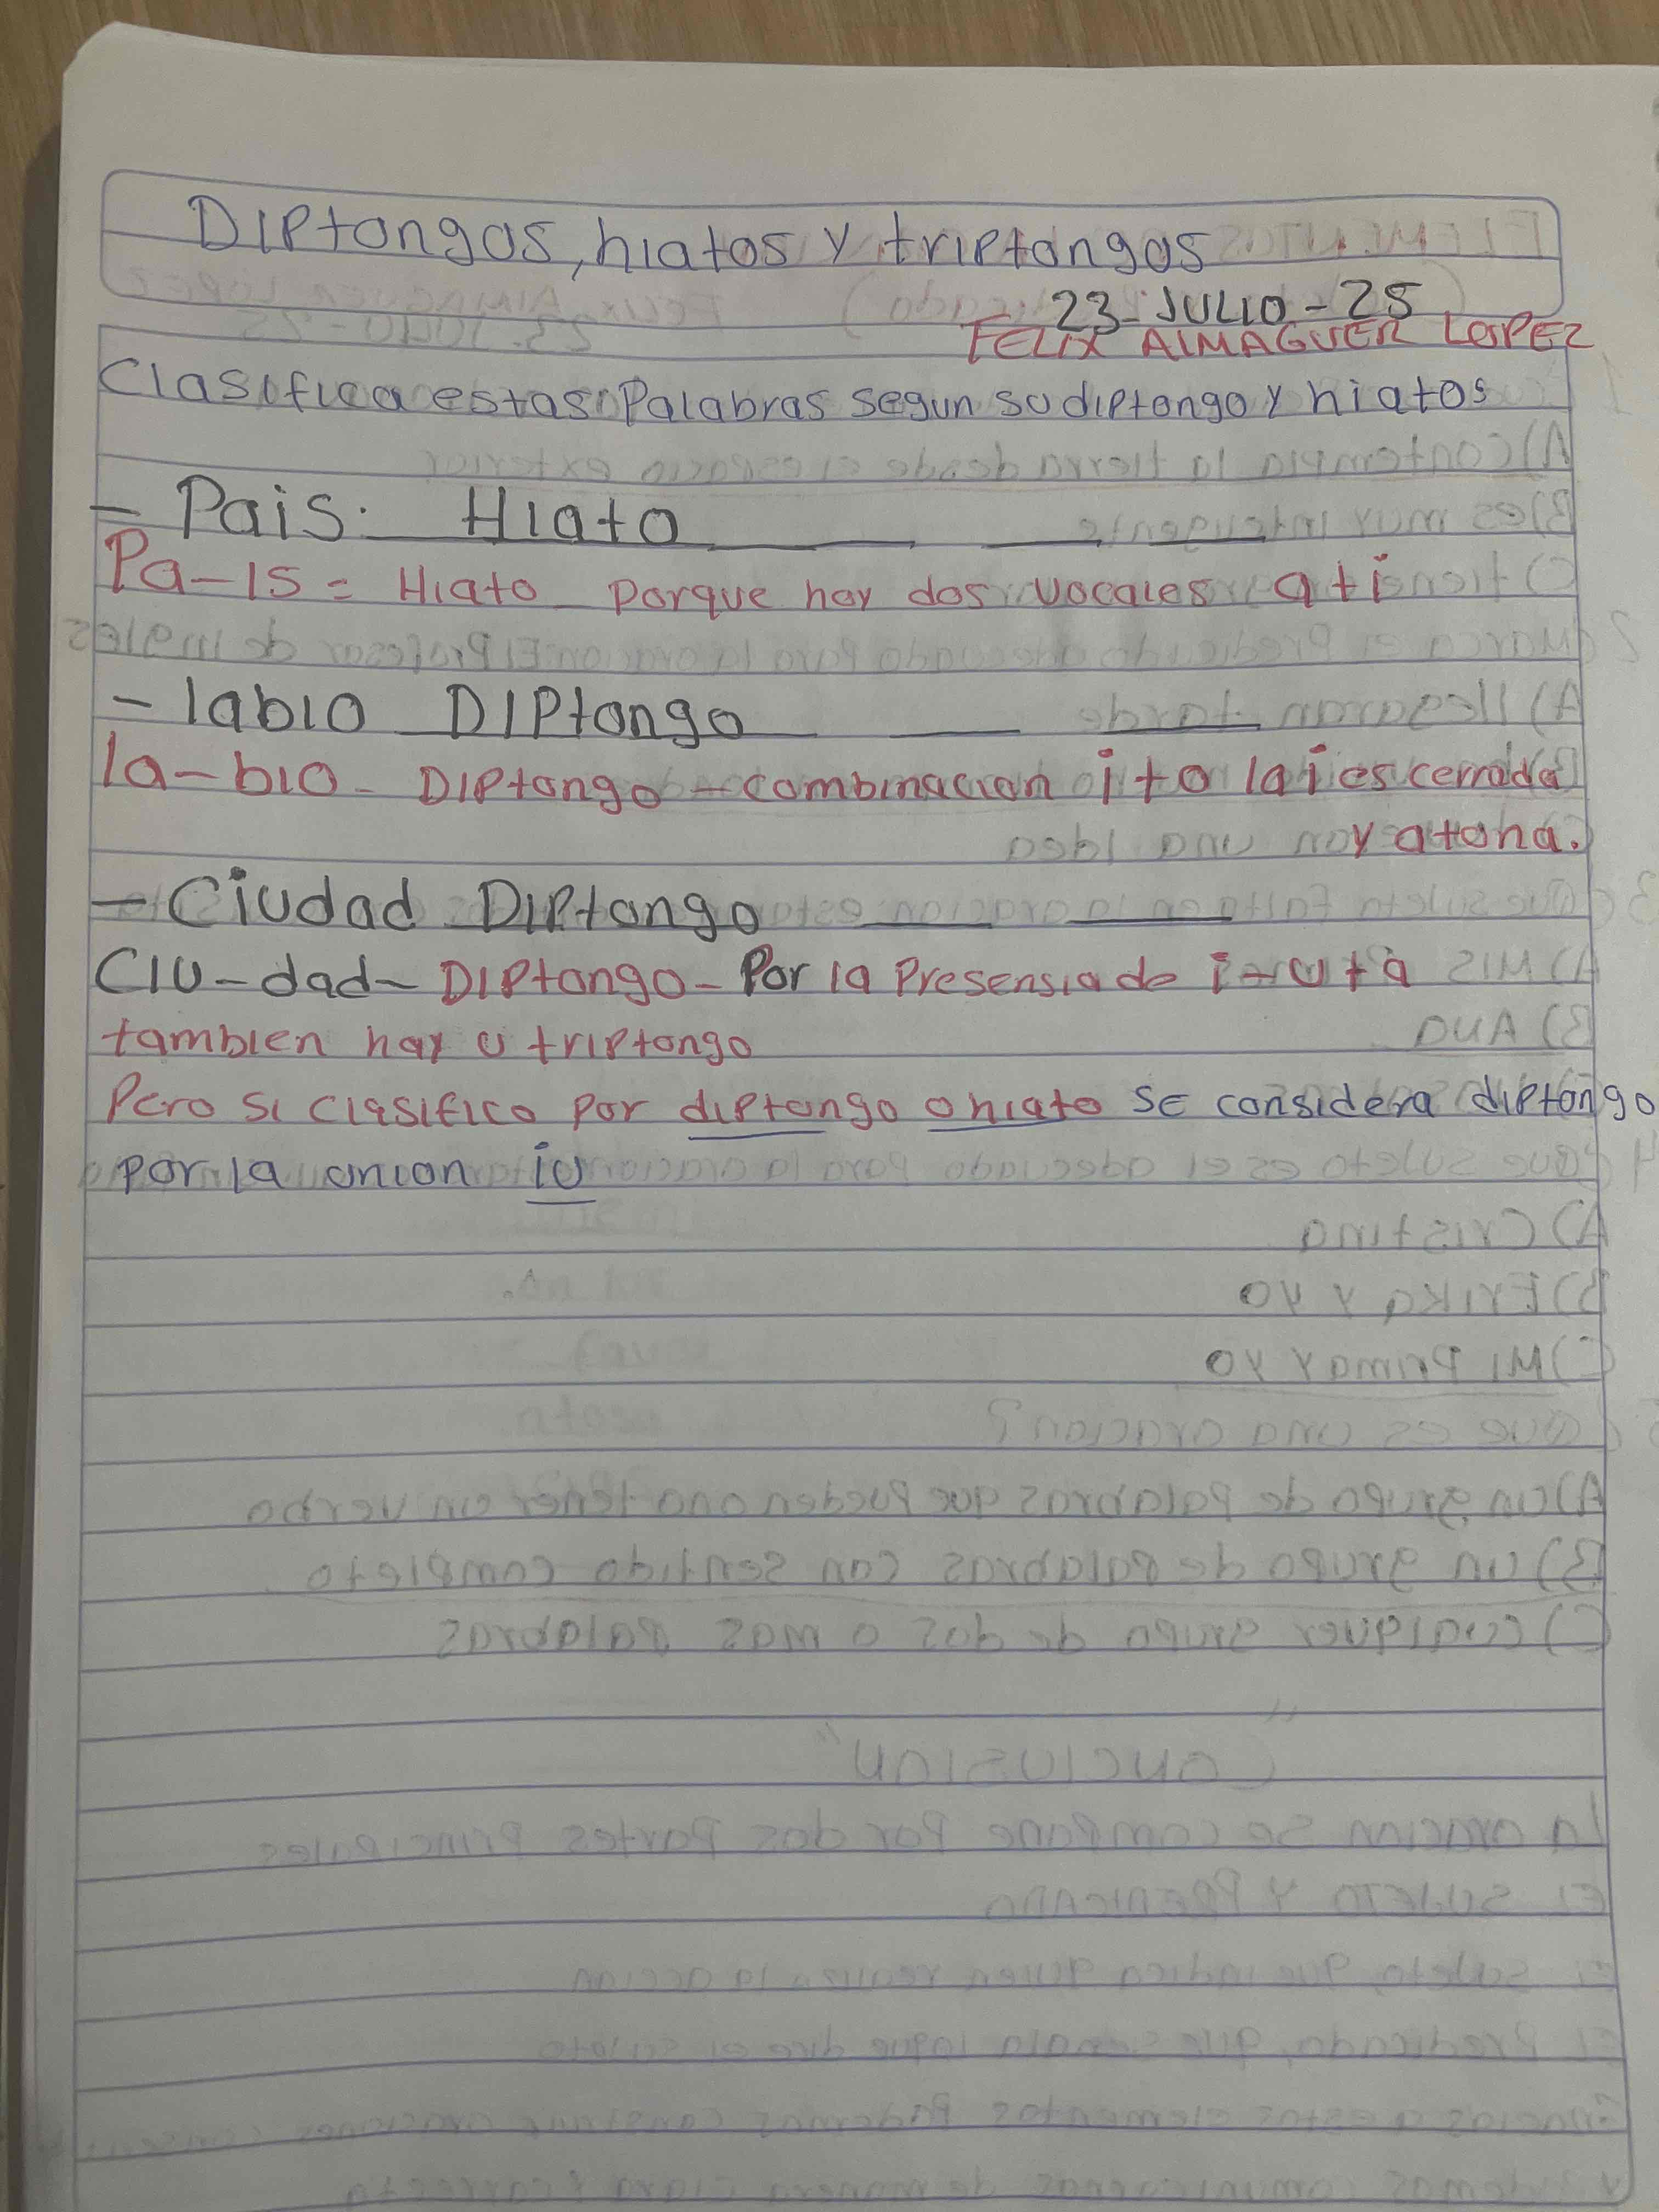 Diptongos, hiatos y triptongos
23-JULIO-25
FELIX AlMAGUER LOPEZ
Clasifica estas Palabras segun su diptongo y hiatos
- Pais: Hiato
Pa-is = Hiato - porque hay dos vocales a+i
- labio Diptongo
la-bio - Diptongo - combinacion i+o la i es cerrada
y atona.
- Ciudad Diptongo
Ciu-dad- Diptongo - Por la Presensia de i-u+a
tambien hay u triptongo
Pero si clasifico por diptongo o hiato se considera diptongo
por la union iu